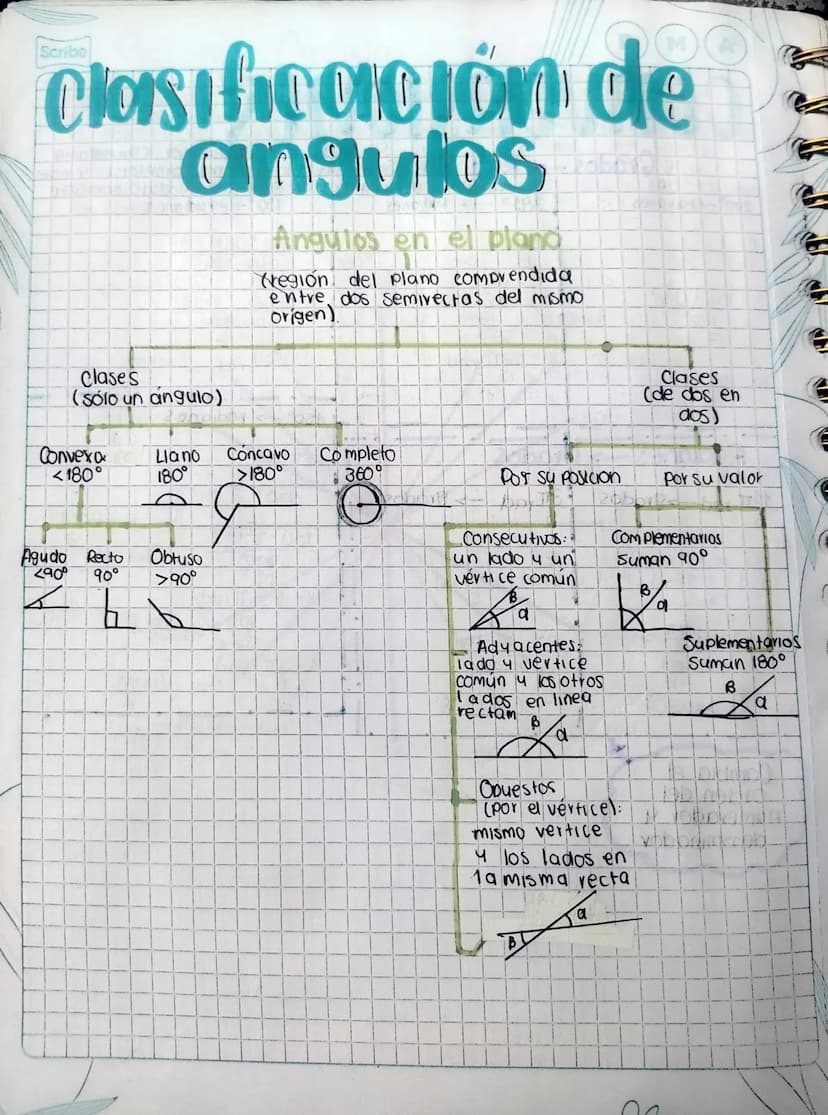 Scribe
Clasificación de
angulos
Angulos en el plano
(región del plano comprendida
entre dos semirectas del mismo
origen).
Clases
(sólo un ángulo)
Convexo
<180°
Llano
180°
Cóncavo
>180°
Completo
360°
Agudo
<90°
Recto
90°
Obtuso
>90°
Clases
(de dos en
dos)
Por su posicion
Por su valor
Consecutivos:
un lado y un
vértice común
B
a
Adyacentes:
lado y vertice
común y los otros
lados en linea
rectam
B
a
Opuestos
(por el vértice):
mismo vertice
y los lados en
la misma recta
a
B
Complementarios
Suman 90°
B
a
Suplementarios
Suman 180°
B
a